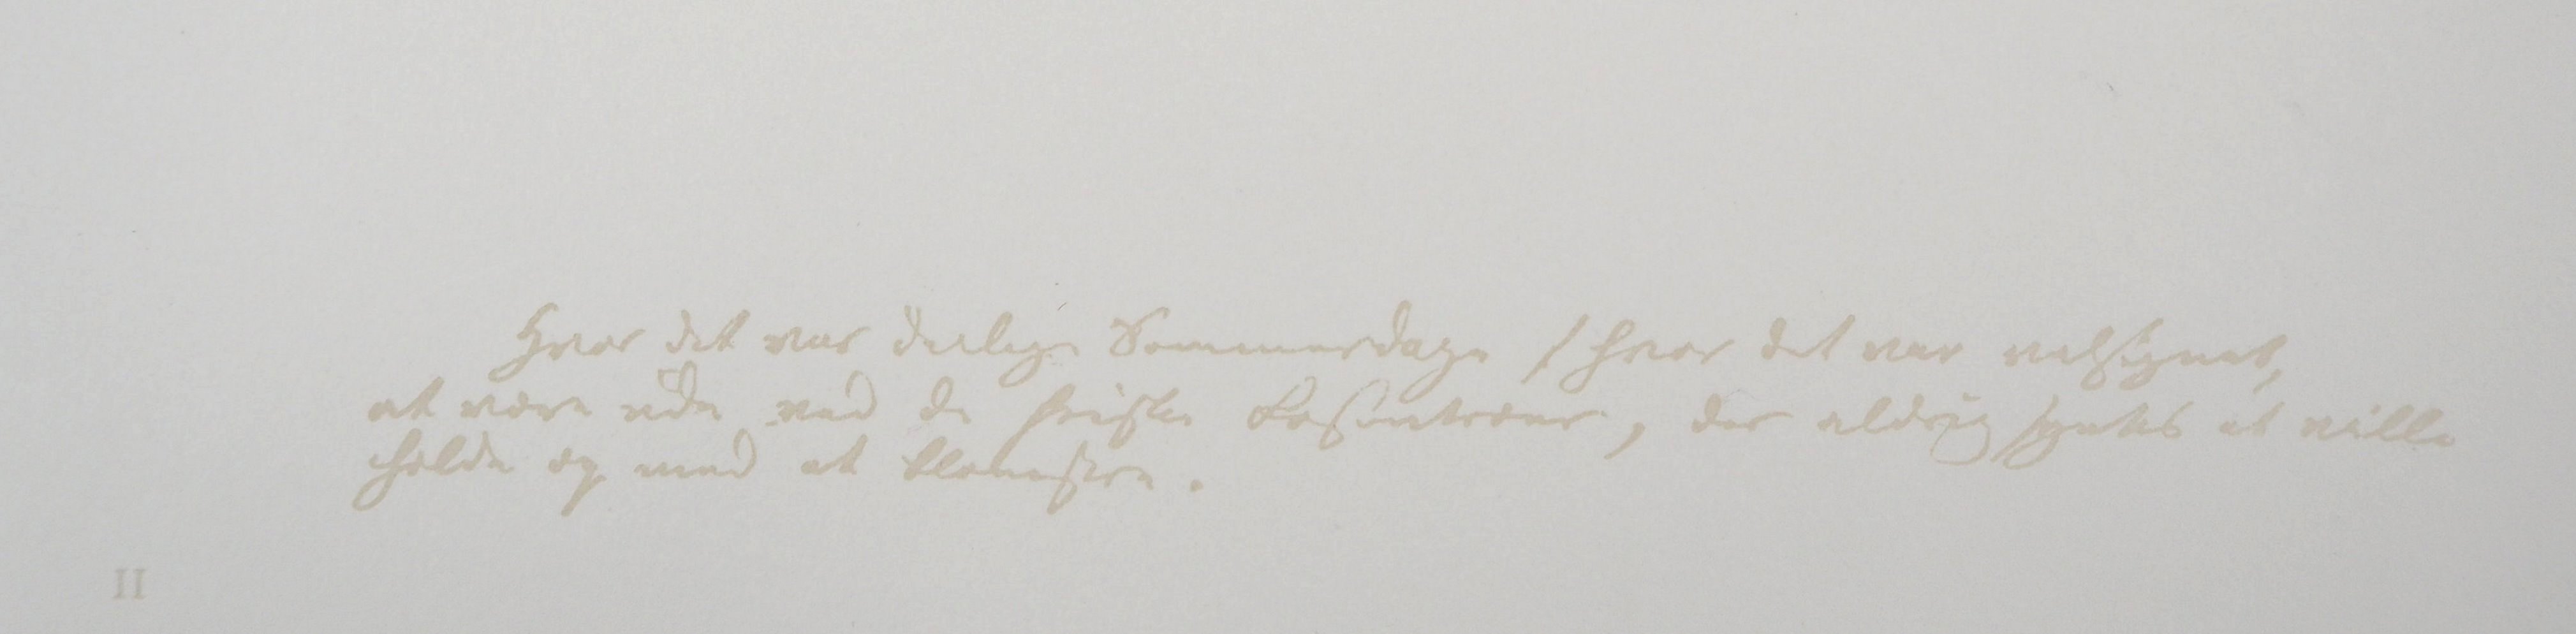 Hvor det var deilige Sommerdage, hvor det var velsignet,
at være ude ved de friske Rosentræer, der aldrig syntes at ville
holde op med at blomstre.
II